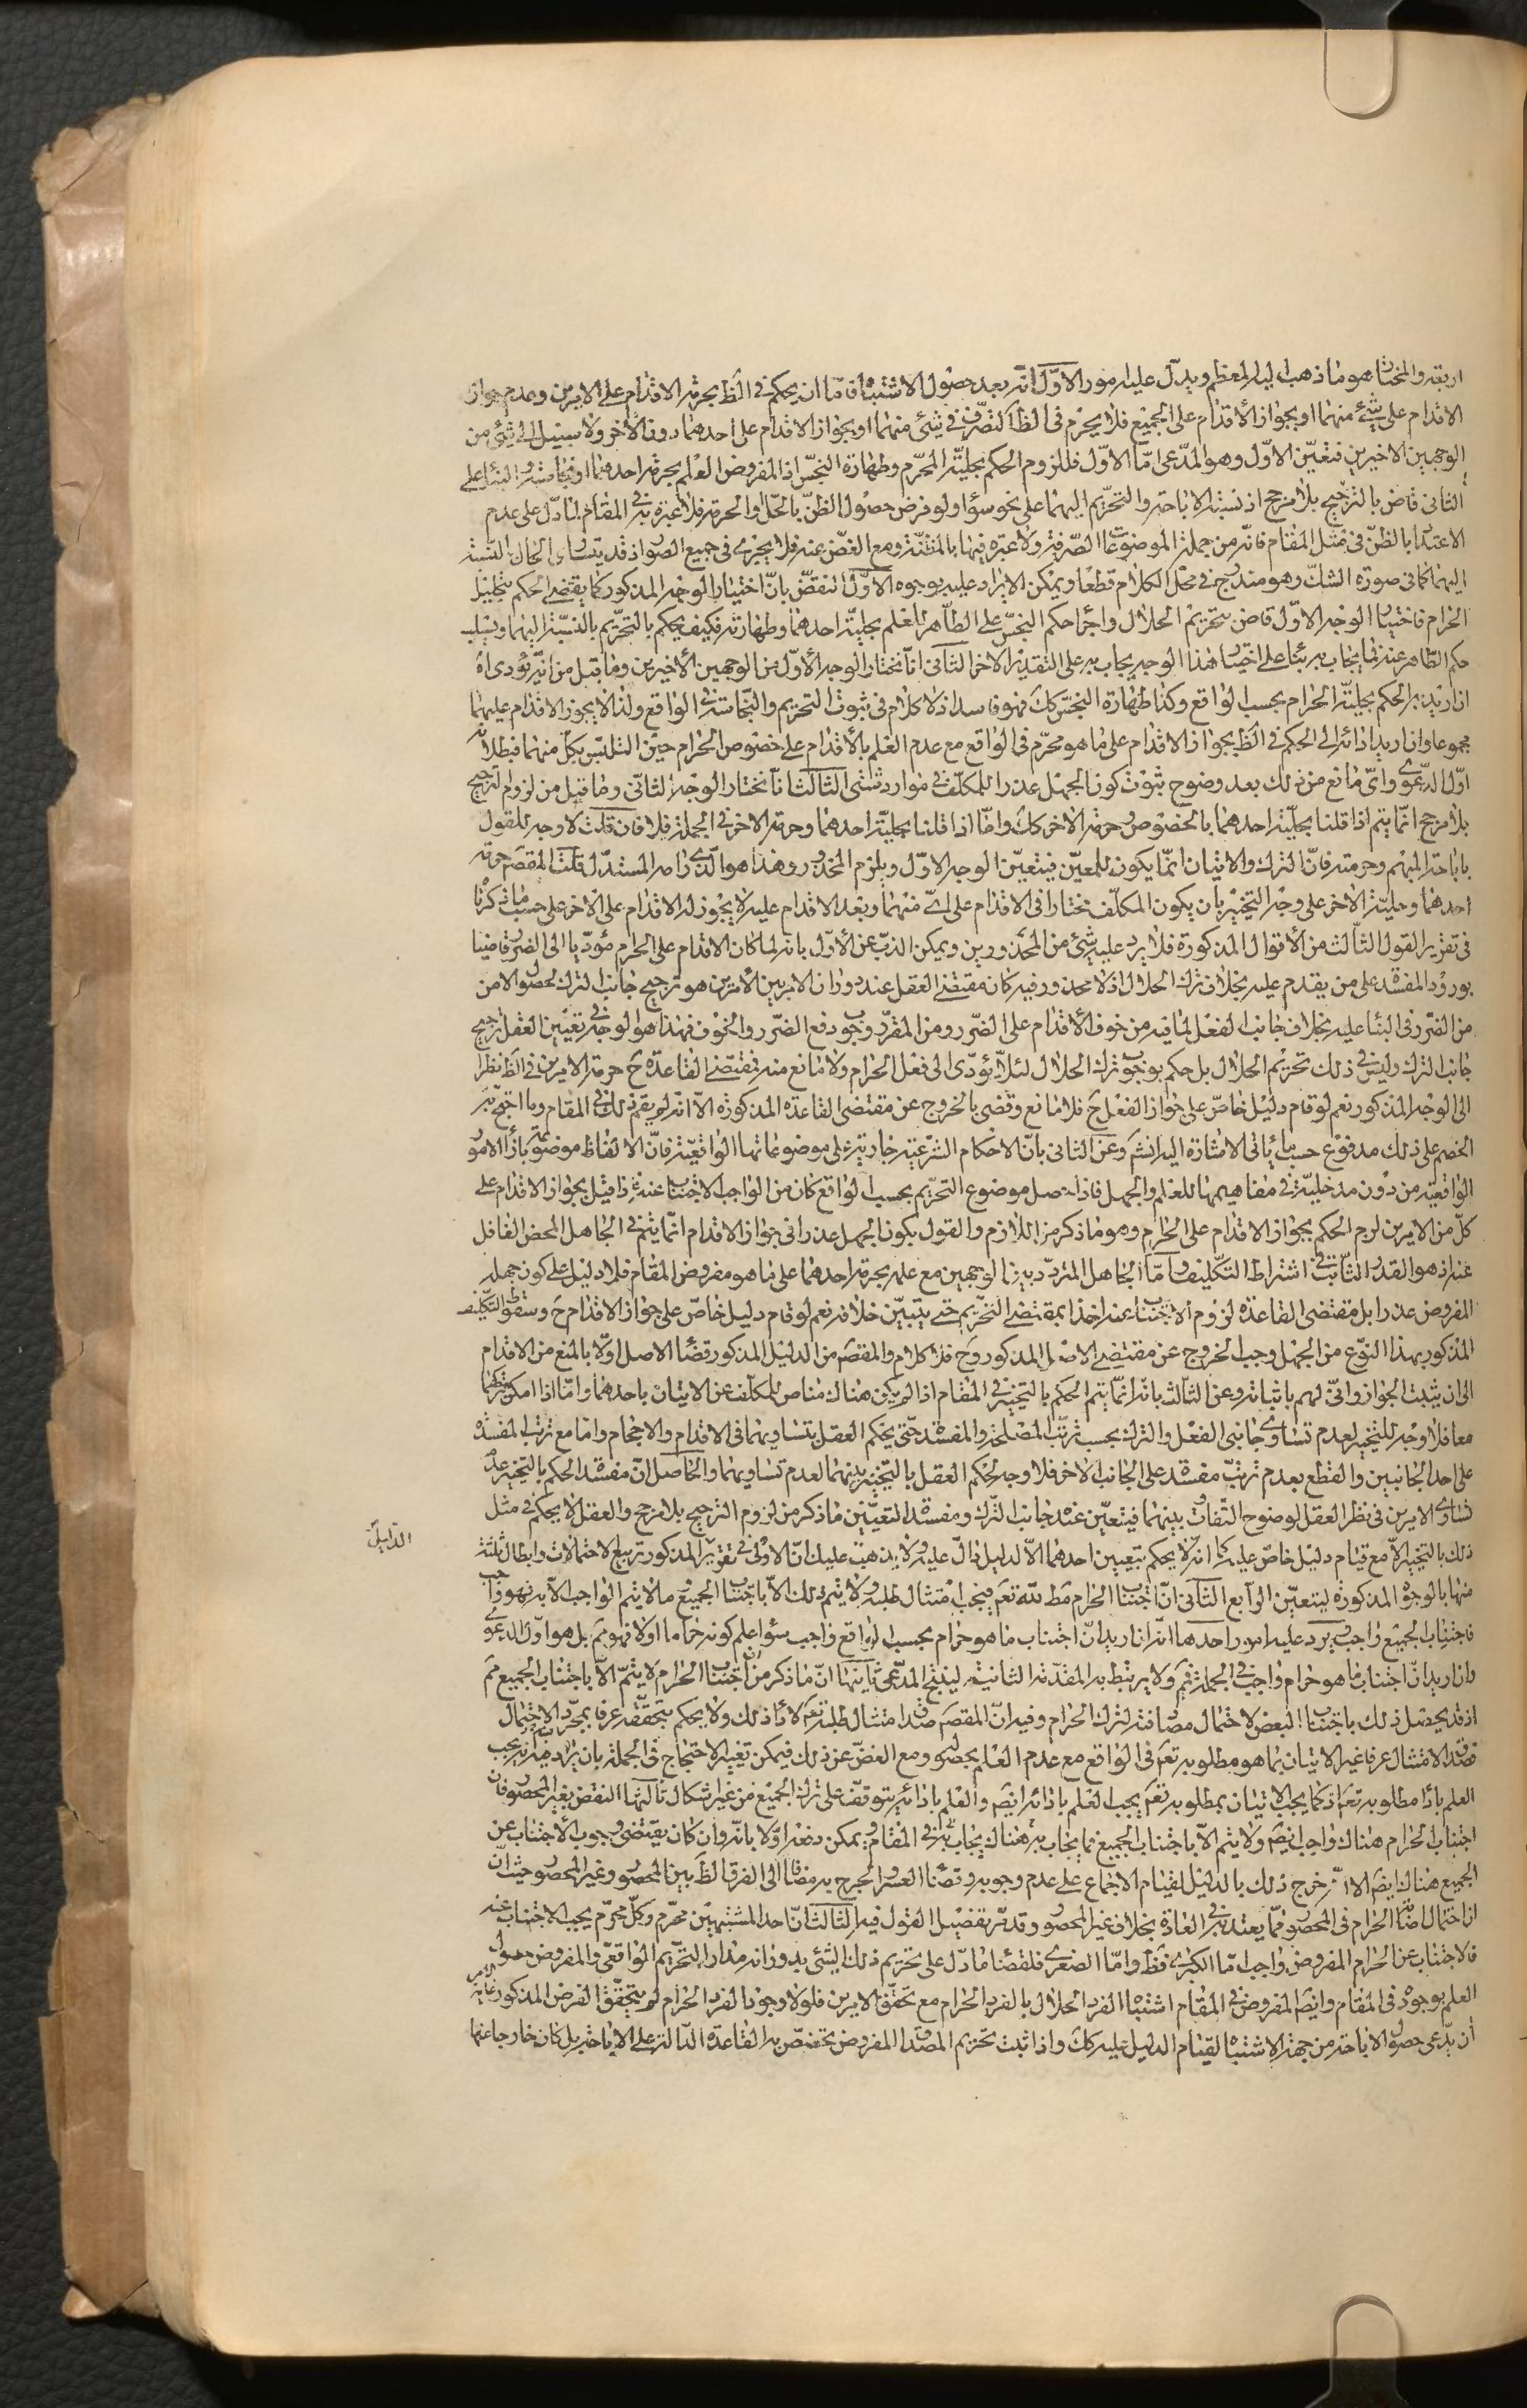 اربعة والمختار هو ما ذهب اليه المعظم ويدلّ عليه امور الاوّل انّه بعد حصول الاشتباه فامّا ان يحكم فى الظ بحرمة الاقدام على الامرين وعدم جواز
الاقدام على شئ منهما او بجواز الاقدام على الجميع فلا يحرم فى الظ التصرّف فى شئ منهما او بجواز الاقدام على احدهما دون الاخر ولا سبيل الى شئ من
الوجهين الاخيرين فتعيّن الاوّل وهو المدّعى امّا الاوّل فللزوم الحكم بحليّة المحرّم وطهارة النجس اذ المفروض العلم بحرمة احدهما او نجاسته والبناء على
الثانى قاض بالترجيح بلا مرجح اذ نسبة الاباحة والتحريم اليهما على نحو سواء ولو فرض حصول الظنّ بالحلّ او الحرمة فلا عبرة به فى المقام لما دلّ على عدم
الاعتداد بالظنّ فى مثل المقام فانّه من جملة الموضوعات الصّرفة ولا عبرة فيها بالمظنّة ومع الغضّ عنه فلا يجرى فى جميع الصّور اذ قد يتساوى الحال بالنّسبة
اليهما كما فى صورة الشكّ وهو مندرج فى محلّ الكلام قطعا ويمكن الايراد عليه بوجوه الاوّل النقض بانّ اختيار الوجه المذكور كما يقتضى الحكم بتحليل
الحرام فاختيار الوجه الاوّل قاض بتحريم الحلال واجراء حكم النجس على الطّاهر للعلم بحليّة احدهما وطهارته فكيف يحكم بالتحريم بالنّسبة اليهما ويسلب
حكم الطّاهر عنه فما يجاب به بناء على اختيار هذا الوجه يجاب به على التقدير الاخر الثانى انّا نختار الوجه الاوّل من الوجهين الاخيرين وما قيل من انّه يؤدى اه
ان اريد به الحكم بحليّة الحرام بحسب الواقع وكذا طهارة النجس كك فهو فاسد اذ لا كلام فى ثبوت التحريم والنّجاسة فى الواقع ولذا لا يجوز الاقدام عليهما
مجموعا وان اريد ادائه الى الحكم فى الظ بجواز الاقدام على ما هو محرّم فى الواقع مع عدم العلم بالاقدام على خصوص الحرام حين التلبّس بكلّ منهما فبطلانه
اوّل الدّعوى واىّ مانع من ذلك بعد وضوح ثبوت كون الجهل عذرا للمكلّف فى موارد شتّى الثالث انّا نختار الوجه الثانى وما قيل من لزوم الترجيح
بلا مرجح انّما يتم اذا قلنا بحليّة احدهما بالخصوص وحرمة الاخر كك وامّا اذا قلنا بحليّة احدهما وحرمة الاخر فى الجملة فلا فان قلت لا وجه للقول
باباحة المبهم وحرمته فانّ الترك والاتيان انّما يكون للمعيّن فيتعيّن الوجه الاوّل ويلزم المحذور وهذا هو الّذى رامه المستدلّ قلت المقصم حرمة
احدهما وحليّة الاخر على وجه التخيير بان يكون المكلّف مختارا فى الاقدام على اىّ منهما وبعد الاقدام عليه لا يجوز له الاقدام على الاخر على حسب ما ذكرنا
فى تقرير القول الثالث من الاقوال المذكورة فلا يرد عليه شئ من المحذورين ويمكن الذبّ عن الاوّل بانه لما كان الاقدام على الحرام مؤدّيا الى الضرر قاضيا
بورود المفسدة على من يقدم عليه بخلاف ترك الحلال اذ لا محذور فيه كان مقتضى العقل عند دوران الامر بين الامرين هو ترجيح جانب الترك لحصول الامن
من الضرر فى البناء عليه بخلاف جانب الفعل لما فيه من خوف الاقدام على الضّرر ومن المقرّر وجوب دفع الضّرر والخوف فهذا هو الوجه فى تعيين العقل ترجيح
جانب الترك وليس فى ذلك تحريم الحلال بل حكم بوجوب ترك الحلال لئلّا يؤدّى الى فعل الحرام ولا مانع منه فمقتضى القاعدة ح حرمة الامرين فى الظ نظرا
الى الوجه المذكور نعم لو قام دليل خاصّ على جواز الفعل ح فلا مانع وقضى بالخروج عن مقتضى القاعدة المذكورة الّا انّه لم يقم ذلك فى المقام وما احتجّ به
الخصم على ذلك مدفوع حسب ما يأتى الاشارة اليه انشم وعن الثانى بانّ الاحكام الشرعيّة جارية على موضوعاتها الواقعيّة فانّ الالفاظ موضوعة بازاء الامور
الواقعيّة من دون مدخليّة فى مفاهيمها للعلم والجهل فاذا حصل موضوع التحريم بحسب الواقع كان من الواجب الاجتناب عنه فاذا قيل بجواز الاقدام على
كلّ من الامرين لزم الحكم بجواز الاقدام على الحرام وهو ما ذكر من اللازم والقول بكون الجهل عذرا فى جواز الاقدام انّما يتم فى الجاهل المحض الغافل
عنه اذ هو القدر الثّابت فى اشتراط التّكليف وامّا الجاهل المتردّد بين الوجهين مع علمه بحرمة احدهما على ما هو مفروض المقام فلا دليل على كون جهله
المفروض عذرا بل مقتضى القاعدة لزوم الاجتناب عنه اخذا بمقتضى التّحريم حتى يتبيّن خلافه نعم لو قام دليل خاصّ على جواز الاقدام ح وسقوط التّكليف
المذكور بهذا النوع من الجهل وجب الخروج عن مقتضى الاصل المذكور وح فلا كلام والمقصم من الدليل المذكور قضاء الاصل اوّلا بالمنع من الاقدام
الى ان يثبت الجواز وانّى لهم باثباته وعن الثالث بانه انّما يتم الحكم بالتخيير فى المقام اذا لم يكن هناك مناص للمكلّف عن الاتيان باحدهما وامّا اذا امكن تركهما
معا فلا وجه للتخيير لعدم تساوى جانبى الفعل والترك بحسب ترتّب المصلحة والمفسدة حتّى يحكم العقل بتساويهما فى الاقدام والاحجام وامّا مع ترتّب المفسدة
على احد الجانبين والقطع بعدم ترتّب مفسدة على الجانب الاخر فلا وجه لحكم العقل بالتخيير بينهما لعدم تساويهما والحاصل انّ مفسدة الحكم بالتخيير عدم
تساوى الامرين فى نظر العقل لوضوح التّفاوت بينهما فيتعيّن عنده جانب الترك ومفسدة التعيين ما ذكر من لزوم الترجيح بلا مرجح والعقل لا يحكم فى مثل
ذلك بالتخيير الّا مع قيام دليل خاصّ عليه كما انّه لا يحكم بتعيين احدهما الّا لدليل دالّ عليه ولا يذهب عليك انّ الاولى فى تقرير المذكور تربيع الاحتمالات وابطال ثلثة
الدّليل
منها بالوجوه المذكورة ليتعيّن الرابع الثانى انّ اجتناب الحرام مط للّه تعم فيجب امتثال طلبه ولا يتم ذلك الّا باجتناب الجميع وما لا يتم الواجب الّا به فهو واجب
فاجتناب الجميع واجب ويرد عليه امور احدها انّه ان اريد انّ اجتناب ما هو حرام بحسب الواقع واجب سواء علم كونه حراما او لا فهو مم بل هو اوّل الدعوى
وان اريد انّ اجتناب ما هو حرام واجب فى الجملة فمم ولا يرتبط به المقدّمة الثانية لينتج المدّعى ثانيها انّ ما ذكر من انّ اجتناب الحرام لا يتمّ الّا باجتناب الجميع مم
اذ قد يحصل ذلك باجتناب البعض لاحتمال مصادفته لترك الحرام وفيه انّ المقصم صدق امتثال طلبه تعم لا اداء ذلك ولا يحكم بتحققه عرفا بمجرّد الاحتمال
فصدق الامتثال عرفا غير الاتيان بما هو مطلوبه تعم فى الواقع مع عدم العلم بحصوله ومع الغضّ عن ذلك فيمكن تغيير الاحتجاج فى الجملة بان يزاد فيه انه يجب
العلم باداء مطلوبه تعم اذ كما يجب الاتيان بمطلوبه تعم يجب العلم بادائه ايضم والعلم بادائه يتوقف على ترك الجميع من غير اشكال ثالثها النقض بغير المحصور فان
اجتناب الحرام هناك واجب ايضم ولا يتم الّا باجتناب الجميع فما يجاب به هناك يجاب به فى المقام ويمكن دفعه اوّلا بانّه وان كان يقتضى وجوب الاجتناب عن
الجميع هناك ايضم الّا انّه خرج ذلك بالدليل لقيام الاجماع على عدم وجوبه وقضاء العسر والحرج به مضافا الى الفرق الظ بين المحصور وغير المحصور حيث ان
احتمال اصابة الحرام فى المحصور ممّا يعتد به فى العادة بخلاف غير المحصور وقد مرّ تفصيل القول فيه الثالث انّ احد المشتبهين محرم وكلّ محرّم يجب الاجتناب عنه
فالاجتناب عن الحرام المفروض واجب امّا الكبرى فظ وامّا الصغرى فلقضاء ما دلّ على تحريم ذلك الشئ بدورانه مدار التّحريم الواقعى والمفروض حصول
العلم بوجوده فى المقام وايضم المفروض فى المقام اشتباه الفرد الحلال بالفرد الحرام مع تحقّق الامرين فلولا وجود الفرد الحرام لم يتحقّق الفرض المذكور غاية الامر
ان يدّعى حصول الاباحة من جهة الاشتباه لقيام الدليل عليه كك واذا ثبت تحريم المصداق المفروض تخصّص به القاعدة الدّالّة على الاباحة بل كان خارجا عنها